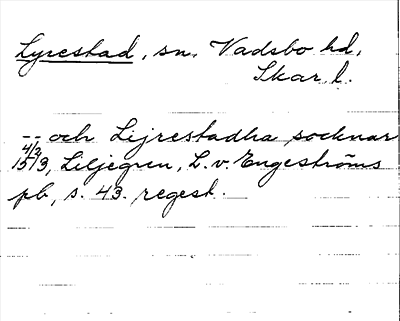 Lyrestad, sn. Vadsbo hd,
Skar. l.
-- och Lijrestadha socknar
4/2
1513, Liljegren, L. v. Engeströms
pb, s. 43. regest.